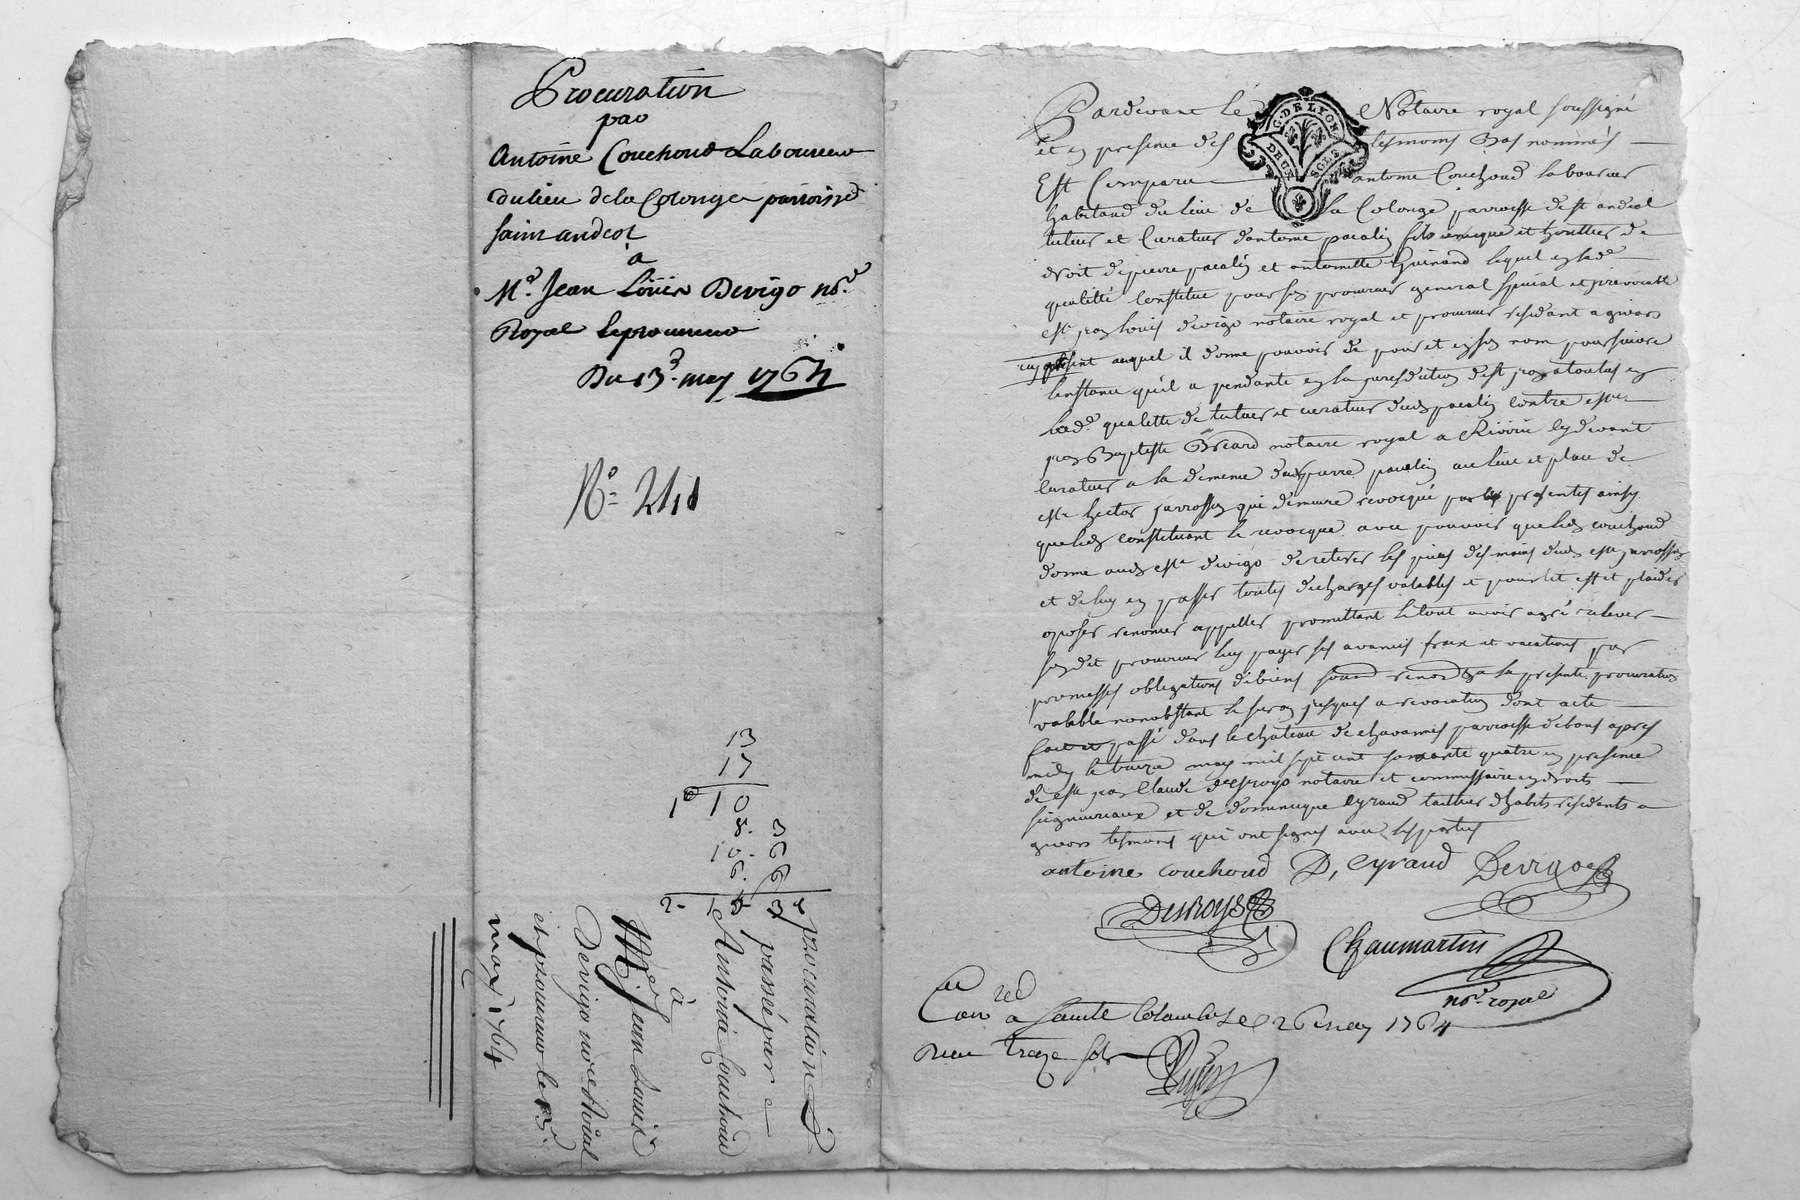 Procuration
par
Antoine Couchoud Laboureur
du lieu de la Colonge parroisse
saint andeol
a
Me. Jean Loüis Devigo nore.
Royal & procureur
Du 13e. may 1764
No. 241
13
17
1 10
8. 3
10. 6
6. 6
2 - 1 5 3
procuration
passé par
Antoine Couchoud
à
Me Jean Louis
Devigo nore Royal
et procureur le 13e.
may 1764
G. DE LYON
DEUX SOLS
Pardevant le Notaire royal soussigné
et en presence des tesmoins bas nommés
Est Comparu antoine Couchoud laboureur
habitand du lieu de la Colonge parroisse de st andeol
tuteur et Curateur d'antoine pacalin fils unique et heritier de
droit de pierre pacalin et antoinette Guinand lequel en lade
qualitté Constitue pour son procureur general special et irrevocable
est jean louis devigo notaire royal et procureur residant a givors
icy present auquel il donne pouvoir de pour et en son nom poursuivre
l'instance qu'il a pendante en la juresdiction de st jean a toulas en
lade. qualitté de tuteur et curateur dud pacalin contre
jean Baptiste Breard notaire royal a Riverie cydevant
Curateur a la demeure dud pierre pacalin au lieu et place de
hector jarrosson qui demeure revocqué par les presentes ainsy
que led constituant le revocque avec pouvoir que led couchoud
donne aud devigo de retirer les pieces des mains dud jarrosson
et de luy en passer toutes decharges valables et pour et plaider
oposer renoncer appeller promettant le tout avoir agré relever
sondit procureur luy payer ses avances fraix et vacations par
promesses obligations de biens la presente procuration
valable nonobstant le suran jusques a revocation dont acte
fait et passé dans le chateau de chavannes parroisse de bans apres
midy le treize may mil sept cent soixante quatre en presence
de jean Claude desroys notaire et commissaire en droits
seigneuriaux et de dominique eyraud tailleur d'habits residants a
givors tesmoins qui ont signés avec les parties
antoine couchoud D, eyraud Devigo
Desroys
Chaumartin
nore. royal
Con a Sainte Colombe le 26 may 1764
Reçu treze sols